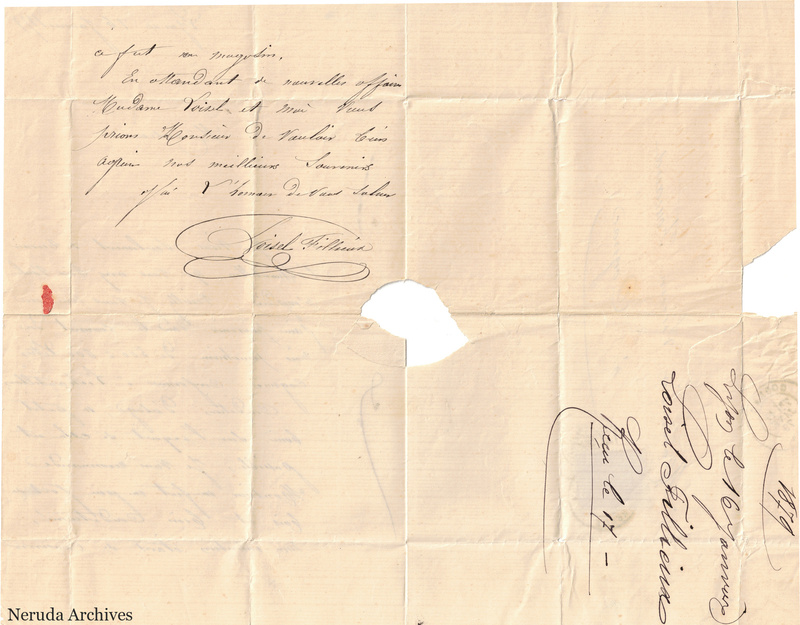 ce fut en magasin.
En attendant de nouvelles affaires
Madame Loisel et moi vous
prions Monsieur de vouloir bien
agréer nos meilleurs Souvenirs
et l'honneur de vous saluer
Loisel Fillieux
1879
Lyon le 16 Janvier
Loisel Fillieux
Reçu le 17 -
Neruda Archives